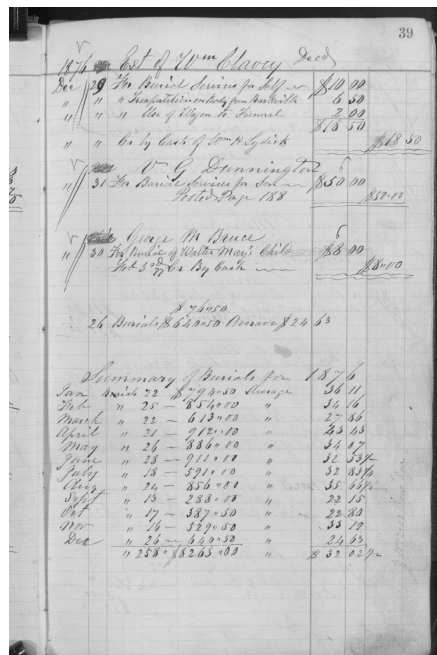 39
1876 Est of Wm Clavey Decd
Dec 29 For Burial Services for Self $10 00
" " " Transportation on Body from Burkville 6 50
" " " Use of Wagon to Funeral 2 00
$18 50
" " Cr by Cash of Wm H $18 50
V G Dunnington
" 31 For Burial Services for Son $50 00
Posted Page 188 $50.00
George M Bruce
" 30 For Burial of Walter May's Child $8 00
Cr By Cash $8.00
$76.50
26 Burials $640.50 $24 63
Summary of Burials for 1876
Jan Burials 22 $794.50 Average 36 11
Feb " 25 — 854.00 " 34 16
March " 22 — 613.00 " 27 86
April " 21 — 912.00 " 43 43
May " 26 — 886.00 " 34 07
June " 28 — 911.00 " 32 53
July " 18 — 591.00 " 32 83
Aug " 24 — 856.00 " 35 66
Sept " 13 — 288.00 " 22 15
Oct " 17 — 387.50 " 22 80
Nov " 16 — 529.50 " 33 10
Dec " 26 — 640.50 " 24 63
" 258 " $8263.00 " $32 02